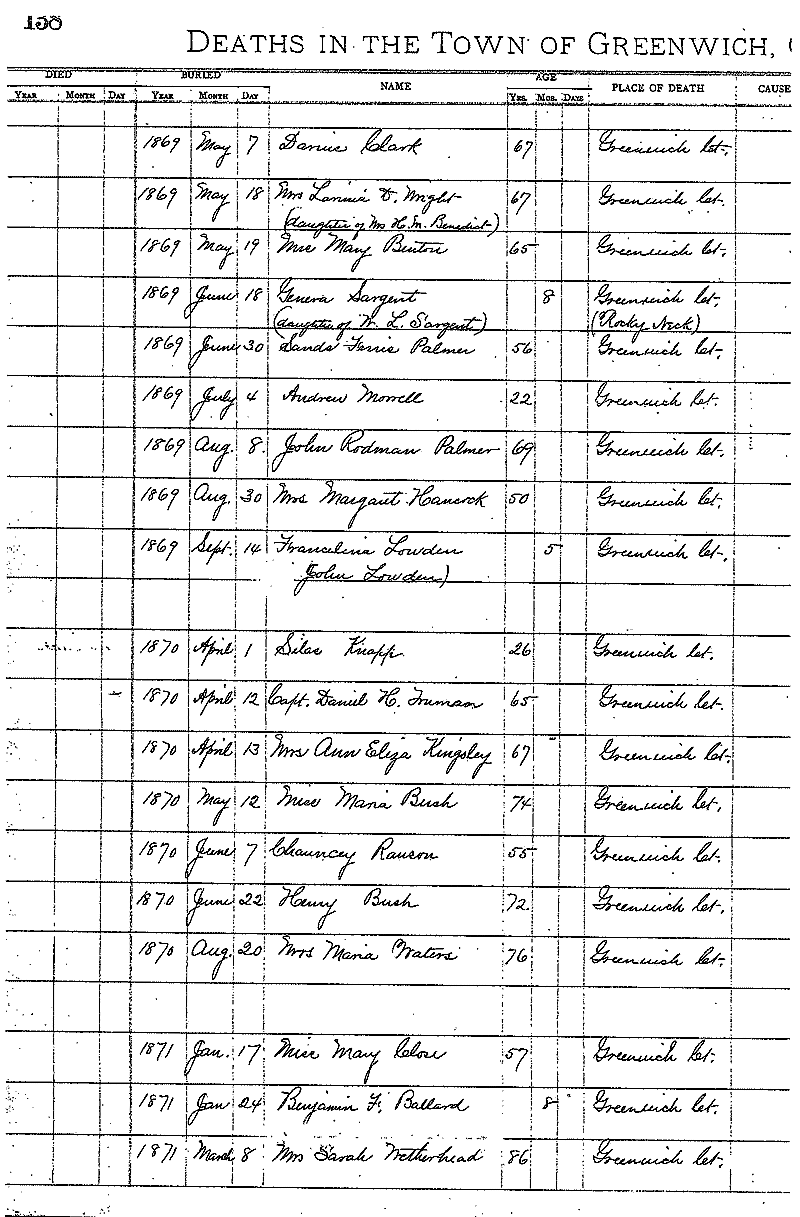 158
DEATHS IN THE TOWN OF GREENWICH,
DIED BURIED NAME AGE PLACE OF DEATH CAUSE
YEAR MONTH DAY YEAR MONTH DAY YRS. MOS. DAYS
1869 May 7 Darius Clark 67 Greenwich Ct.
1869 May 18 Mrs Lavinia D. Wright 67 Greenwich Ct.
(daughter of Mrs H. M. Benedict)
1869 May 19 Miss Mary Benton 65 Greenwich Ct.
1869 June 18 Geneva Sargent 8 Greenwich Ct.
(daughter of W. L. Sargent) (Rocky Neck)
1869 June 30 Sands Ferris Palmer 56 Greenwich Ct.
1869 July 4 Andrew Morrell 22 Greenwich Ct.
1869 Aug. 8. John Rodman Palmer 69 Greenwich Ct.
1869 Aug. 30 Mrs Margaret Hancock 50 Greenwich Ct.
1869 Sept. 14 Francelina Lowden 5 Greenwich Ct.
John Lowden)
1870 April 1 Silas Knapp 26 Greenwich Ct.
1870 April 12 Capt. Daniel H. Truman 65 Greenwich Ct.
1870 April 13 Mrs Ann Eliza Kingsley 67 Greenwich Ct.
1870 May 12 Miss Maria Bush 74 Greenwich Ct.
1870 June 7 Chauncey Ranson 55 Greenwich Ct.
1870 June 22 Henry Bush 72 Greenwich Ct.
1870 Aug. 20 Mrs Maria Waters 76 Greenwich Ct.
1871 Jan. 17 Miss Mary Close 57 Greenwich Ct.
1871 Jan 24 Benjamin F. Ballard 8 Greenwich Ct.
1871 March 8 Mrs Sarah Wetherhead 86 Greenwich Ct.